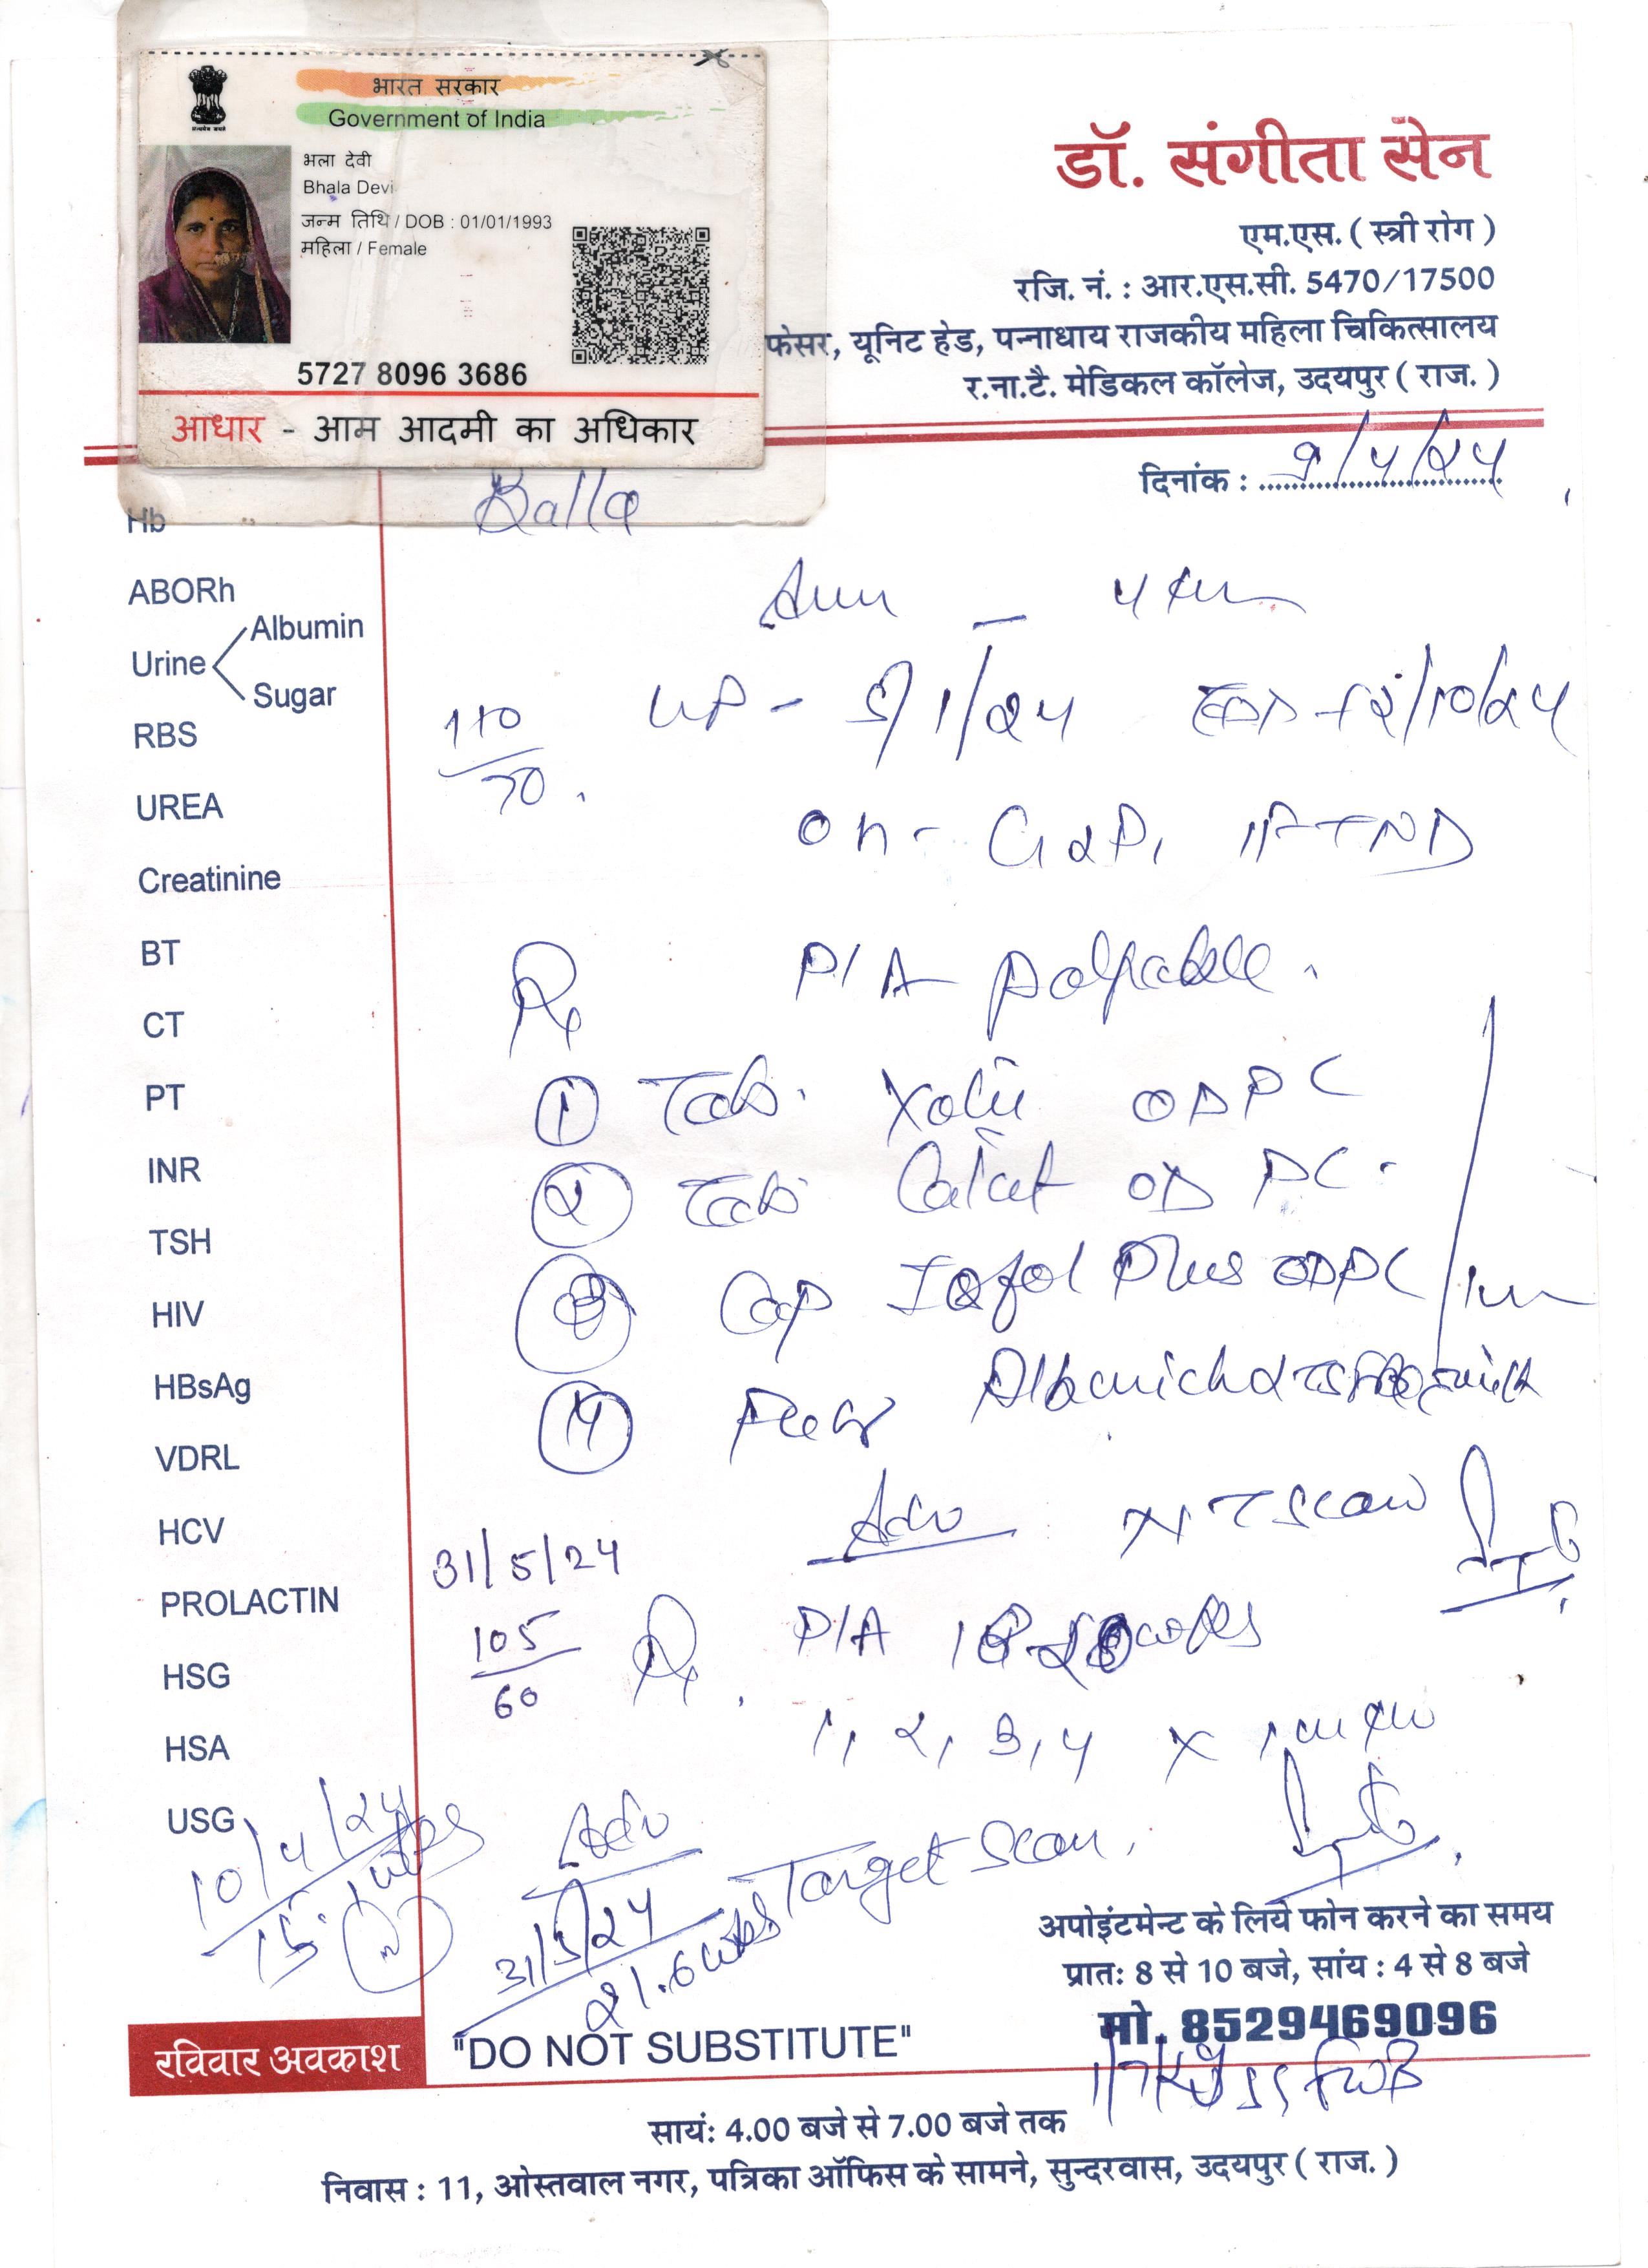 भारत सरकार
Government of India
भला देवी
Bhala Devi
जन्म तिथि / DOB : 01/01/1993
महिला / Female
5727 8096 3686
आधार - आम आदमी का अधिकार
डॉ. संगीता सेन
एम.एस. ( स्त्री रोग )
रजि. नं. : आर.एस.सी. 5470/17500
फेसर, यूनिट हेड, पन्नाधाय राजकीय महिला चिकित्सालय
र.ना.टै. मेडिकल कॉलेज, उदयपुर ( राज. )
दिनांक : 9/4/24
Balla
Hb
ABORh
Urine
Albumin
Sugar
RBS
UREA
Creatinine
BT
CT
PT
INR
TSH
HIV
HBsAg
VDRL
HCV
PROLACTIN
HSG
HSA
USG
110/70
LMP - 5/1/24 EDD - 12/10/24
OH - G2P1 1FTND
P/A palpable.
Rx
1 Tab. ODPC
2 Tab OD PC.
3 Cap Plus ODPC
4
Adv NT Scan
31/5/24
105/60
Rx P/A 18-20 wks
1, 2, 3, 4 x
Adv Target Scan.
10/4/24
15.1 wks
31/5/24
21.6 wks
अपोइंटमेन्ट के लिये फोन करने का समय
प्रातः 8 से 10 बजे, सांय : 4 से 8 बजे
मो. 8529469096
रविवार अवकाश
"DO NOT SUBSTITUTE"
सायं: 4.00 बजे से 7.00 बजे तक
निवास : 11, ओस्तवाल नगर, पत्रिका ऑफिस के सामने, सुन्दरवास, उदयपुर ( राज. )